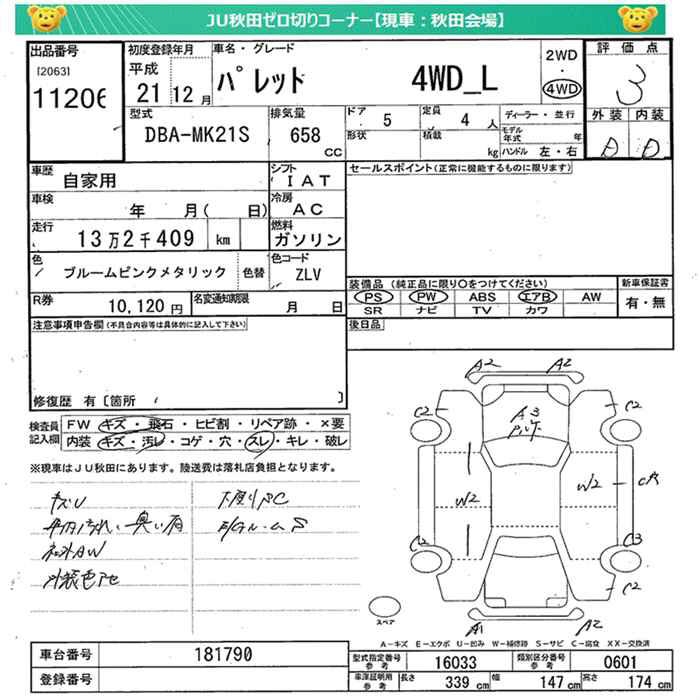 JU秋田ゼロ切りコーナー【現車：秋田会場】
出品番号
[2063]
11206
初度登録年月
平成
21 12 月
車名・グレード
パレット 4WD_L
2WD
・
4WD
評価点
3
外装 内装
D D
型式
DBA-MK21S
排気量
658
CC
ドア
5
形状
定員
4 人
積載
kg
ディーラー・並行
モデル年式 年
ハンドル 左・右
車歴
自家用
シフト
IAT
セールスポイント(正常に機能するものに限ります)
車検
年 月( 日)
冷房
AC
走行
13万2千409 km
燃料
ガソリン
色
ブルームピンクメタリック
色替
色コード
ZLV
装備品 (純正品に限り○をつけてください)
PS PW ABS エアB AW
SR ナビ TV カワ
新車保証書
有・無
R券
10,120 円
名変通知期限
月 日
後日品
注意事項申告欄(不具合内容等は具体的に記入して下さい)
修復歴 有〔箇所 〕
検査員記入欄
FW キズ・飛石・ヒビ割・リペア跡・×要
内装 キズ・汚レ・コゲ・穴・スレ・キレ・破レ
※現車はJU秋田にあります。陸送費は落札店負担となります。
キズU
下廻りSC
外装色アセ
A2 A2
C2 A3 C2
W2 W2
C2 C3
C2
A1 A2
スペア
A-キズ E-エクボ U-凹み W-補修跡 S-サビ C-腐食 XX-交換済
車台番号
181790
登録番号
型式指定番号
参考
16033
類別区分番号
参考
0601
車庫証明用
参考
長さ 339 cm
幅 147 cm
高さ 174 cm